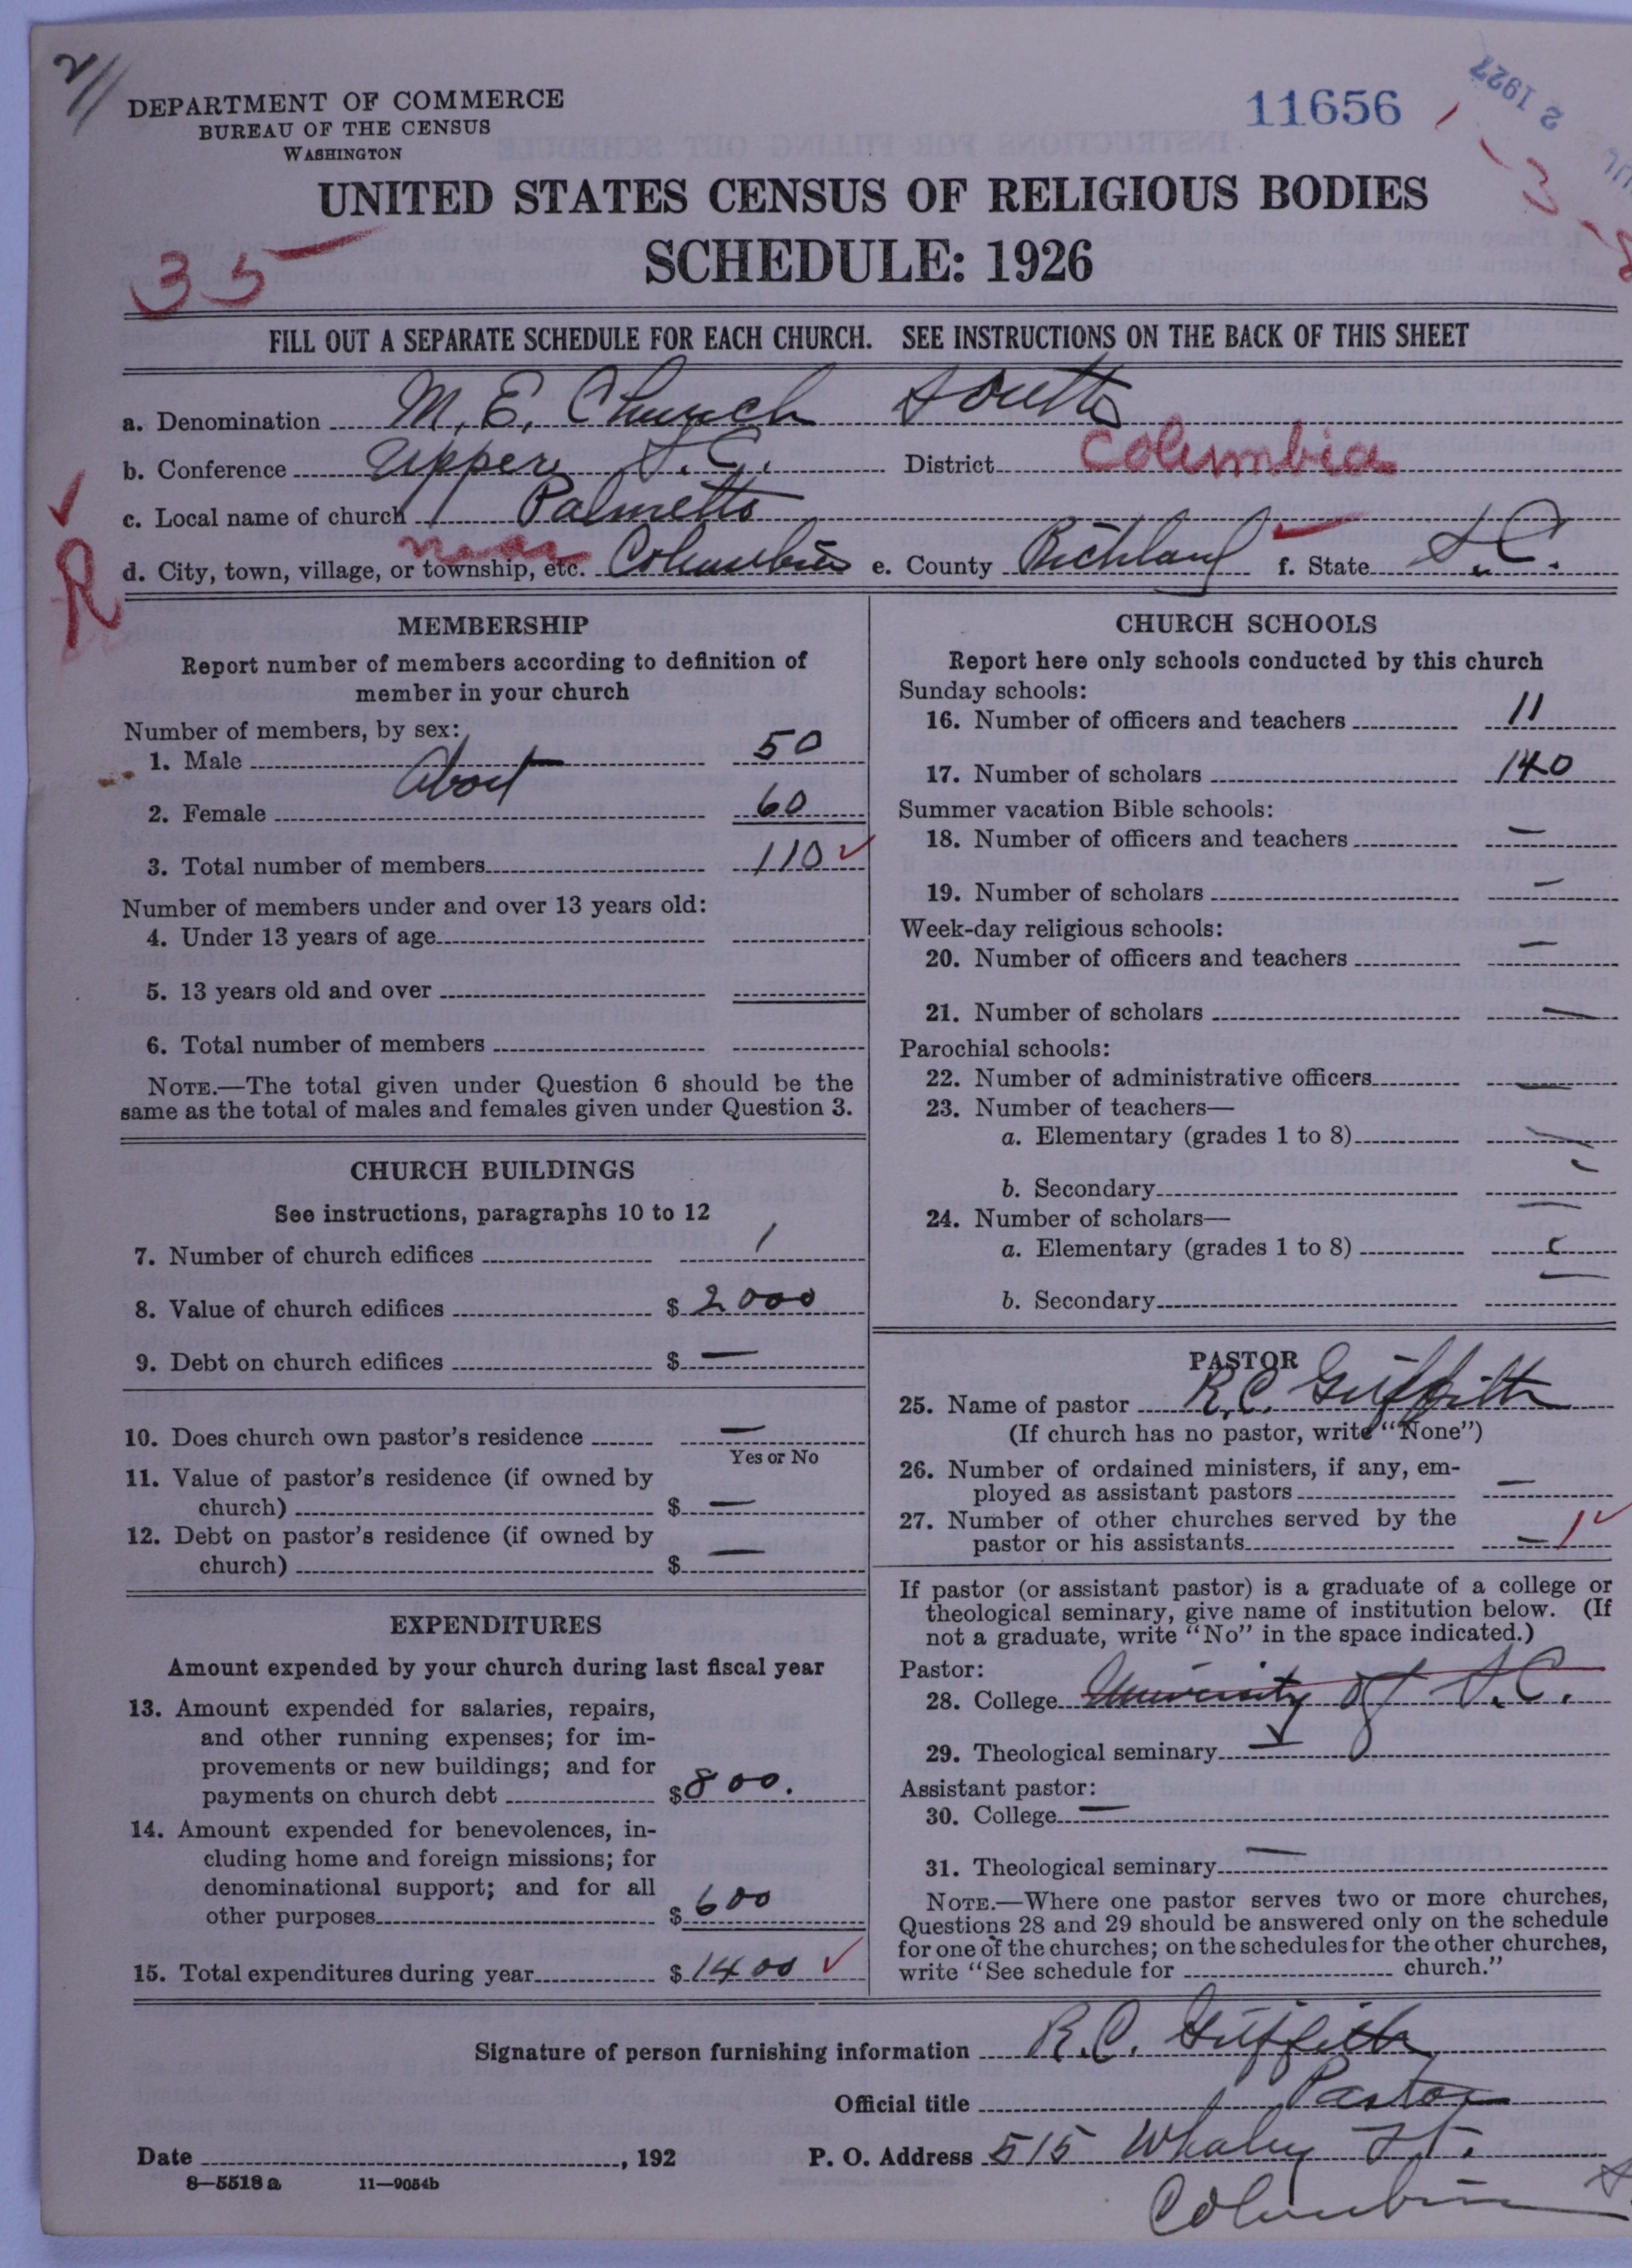 2//
DEPARTMENT OF COMMERCE
BUREAU OF THE CENSUS
WASHINGTON
11656
2 1927
UNITED STATES CENSUS OF RELIGIOUS BODIES
SCHEDULE: 1926
35
FILL OUT A SEPARATE SCHEDULE FOR EACH CHURCH. SEE INSTRUCTIONS ON THE BACK OF THIS SHEET
a. Denomination M. E. Church South
b. Conference Upper S.C. District Columbia
c. Local name of church Palmetto
d. City, town, village, or township, etc. near Columbia e. County Richland f. State S.C.
R
MEMBERSHIP
Report number of members according to definition of
member in your church
Number of members, by sex:
1. Male About 50
2. Female 60
3. Total number of members 110
Number of members under and over 13 years old:
4. Under 13 years of age
5. 13 years old and over
6. Total number of members
NOTE.—The total given under Question 6 should be the
same as the total of males and females given under Question 3.
CHURCH BUILDINGS
See instructions, paragraphs 10 to 12
7. Number of church edifices 1
8. Value of church edifices $ 2000
9. Debt on church edifices $ —
10. Does church own pastor's residence —
Yes or No
11. Value of pastor's residence (if owned by
church) $ —
12. Debt on pastor's residence (if owned by
church) $ —
EXPENDITURES
Amount expended by your church during last fiscal year
13. Amount expended for salaries, repairs,
and other running expenses; for im-
provements or new buildings; and for
payments on church debt $ 800.
14. Amount expended for benevolences, in-
cluding home and foreign missions; for
denominational support; and for all
other purposes $ 600
15. Total expenditures during year $ 1400
CHURCH SCHOOLS
Report here only schools conducted by this church
Sunday schools:
16. Number of officers and teachers 11
17. Number of scholars 140
Summer vacation Bible schools:
18. Number of officers and teachers —
19. Number of scholars —
Week-day religious schools:
20. Number of officers and teachers —
21. Number of scholars —
Parochial schools:
22. Number of administrative officers —
23. Number of teachers—
a. Elementary (grades 1 to 8) —
b. Secondary —
24. Number of scholars—
a. Elementary (grades 1 to 8) —
b. Secondary —
PASTOR
25. Name of pastor R.C. Griffith
(If church has no pastor, write "None")
26. Number of ordained ministers, if any, em-
ployed as assistant pastors —
27. Number of other churches served by the
pastor or his assistants — 1
If pastor (or assistant pastor) is a graduate of a college or
theological seminary, give name of institution below. (If
not a graduate, write "No" in the space indicated.)
Pastor:
28. College University of S.C.
29. Theological seminary
Assistant pastor:
30. College —
31. Theological seminary —
NOTE.—Where one pastor serves two or more churches,
Questions 28 and 29 should be answered only on the schedule
for one of the churches; on the schedules for the other churches,
write "See schedule for church."
Signature of person furnishing information R.C. Griffith
Official title Pastor
Date , 192 P. O. Address 515 Whaley St.
8—5518 a 11—9054b
Columbia S.